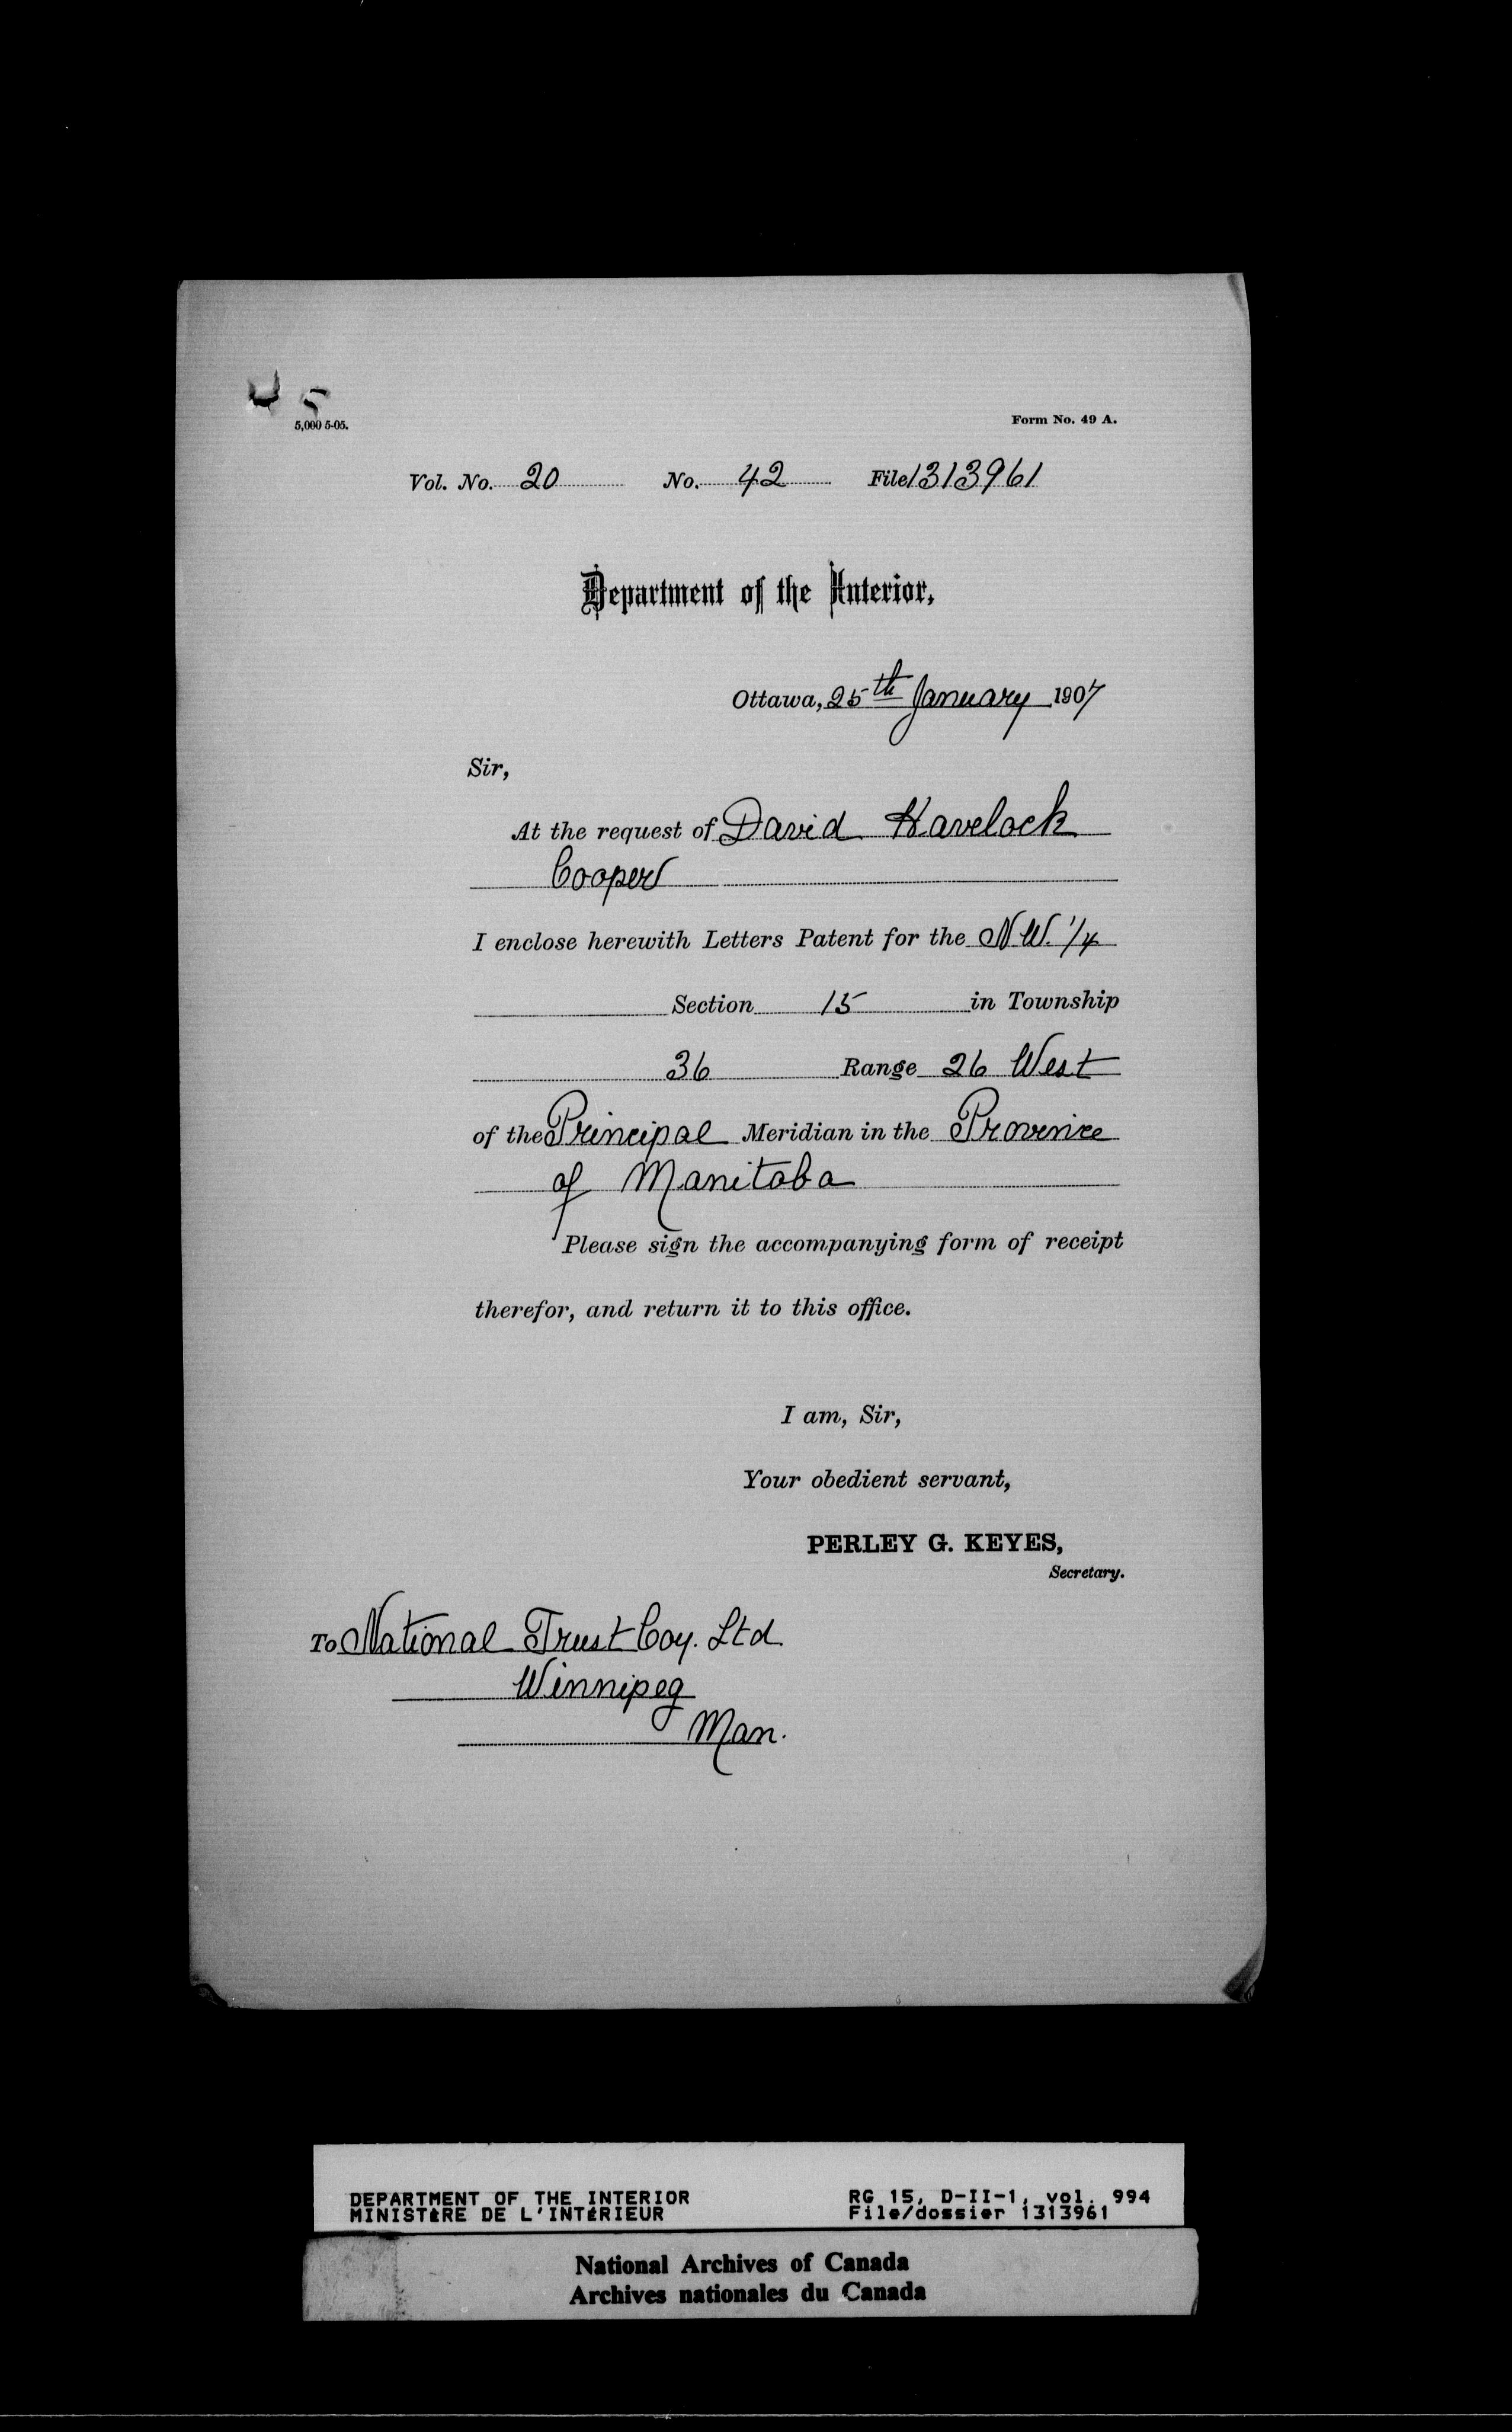 5,000 5-05.
Form No. 49 A.
Vol. No. 20 No. 42 File 1313961
Department of the Interior,
Ottawa, 25th January 1907
Sir,
At the request of David Havelock
Cooper
I enclose herewith Letters Patent for the N.W. 1/4
Section 15 in Township
36 Range 26 West
of the Principal Meridian in the Province
of Manitoba
Please sign the accompanying form of receipt
therefor, and return it to this office.
I am, Sir,
Your obedient servant,
PERLEY G. KEYES,
Secretary.
To National Trust Coy. Ltd.
Winnipeg
Man.
DEPARTMENT OF THE INTERIOR RG 15, D-II-1, vol. 994
MINISTÈRE DE L'INTÉRIEUR File/dossier 1313961
National Archives of Canada
Archives nationales du Canada